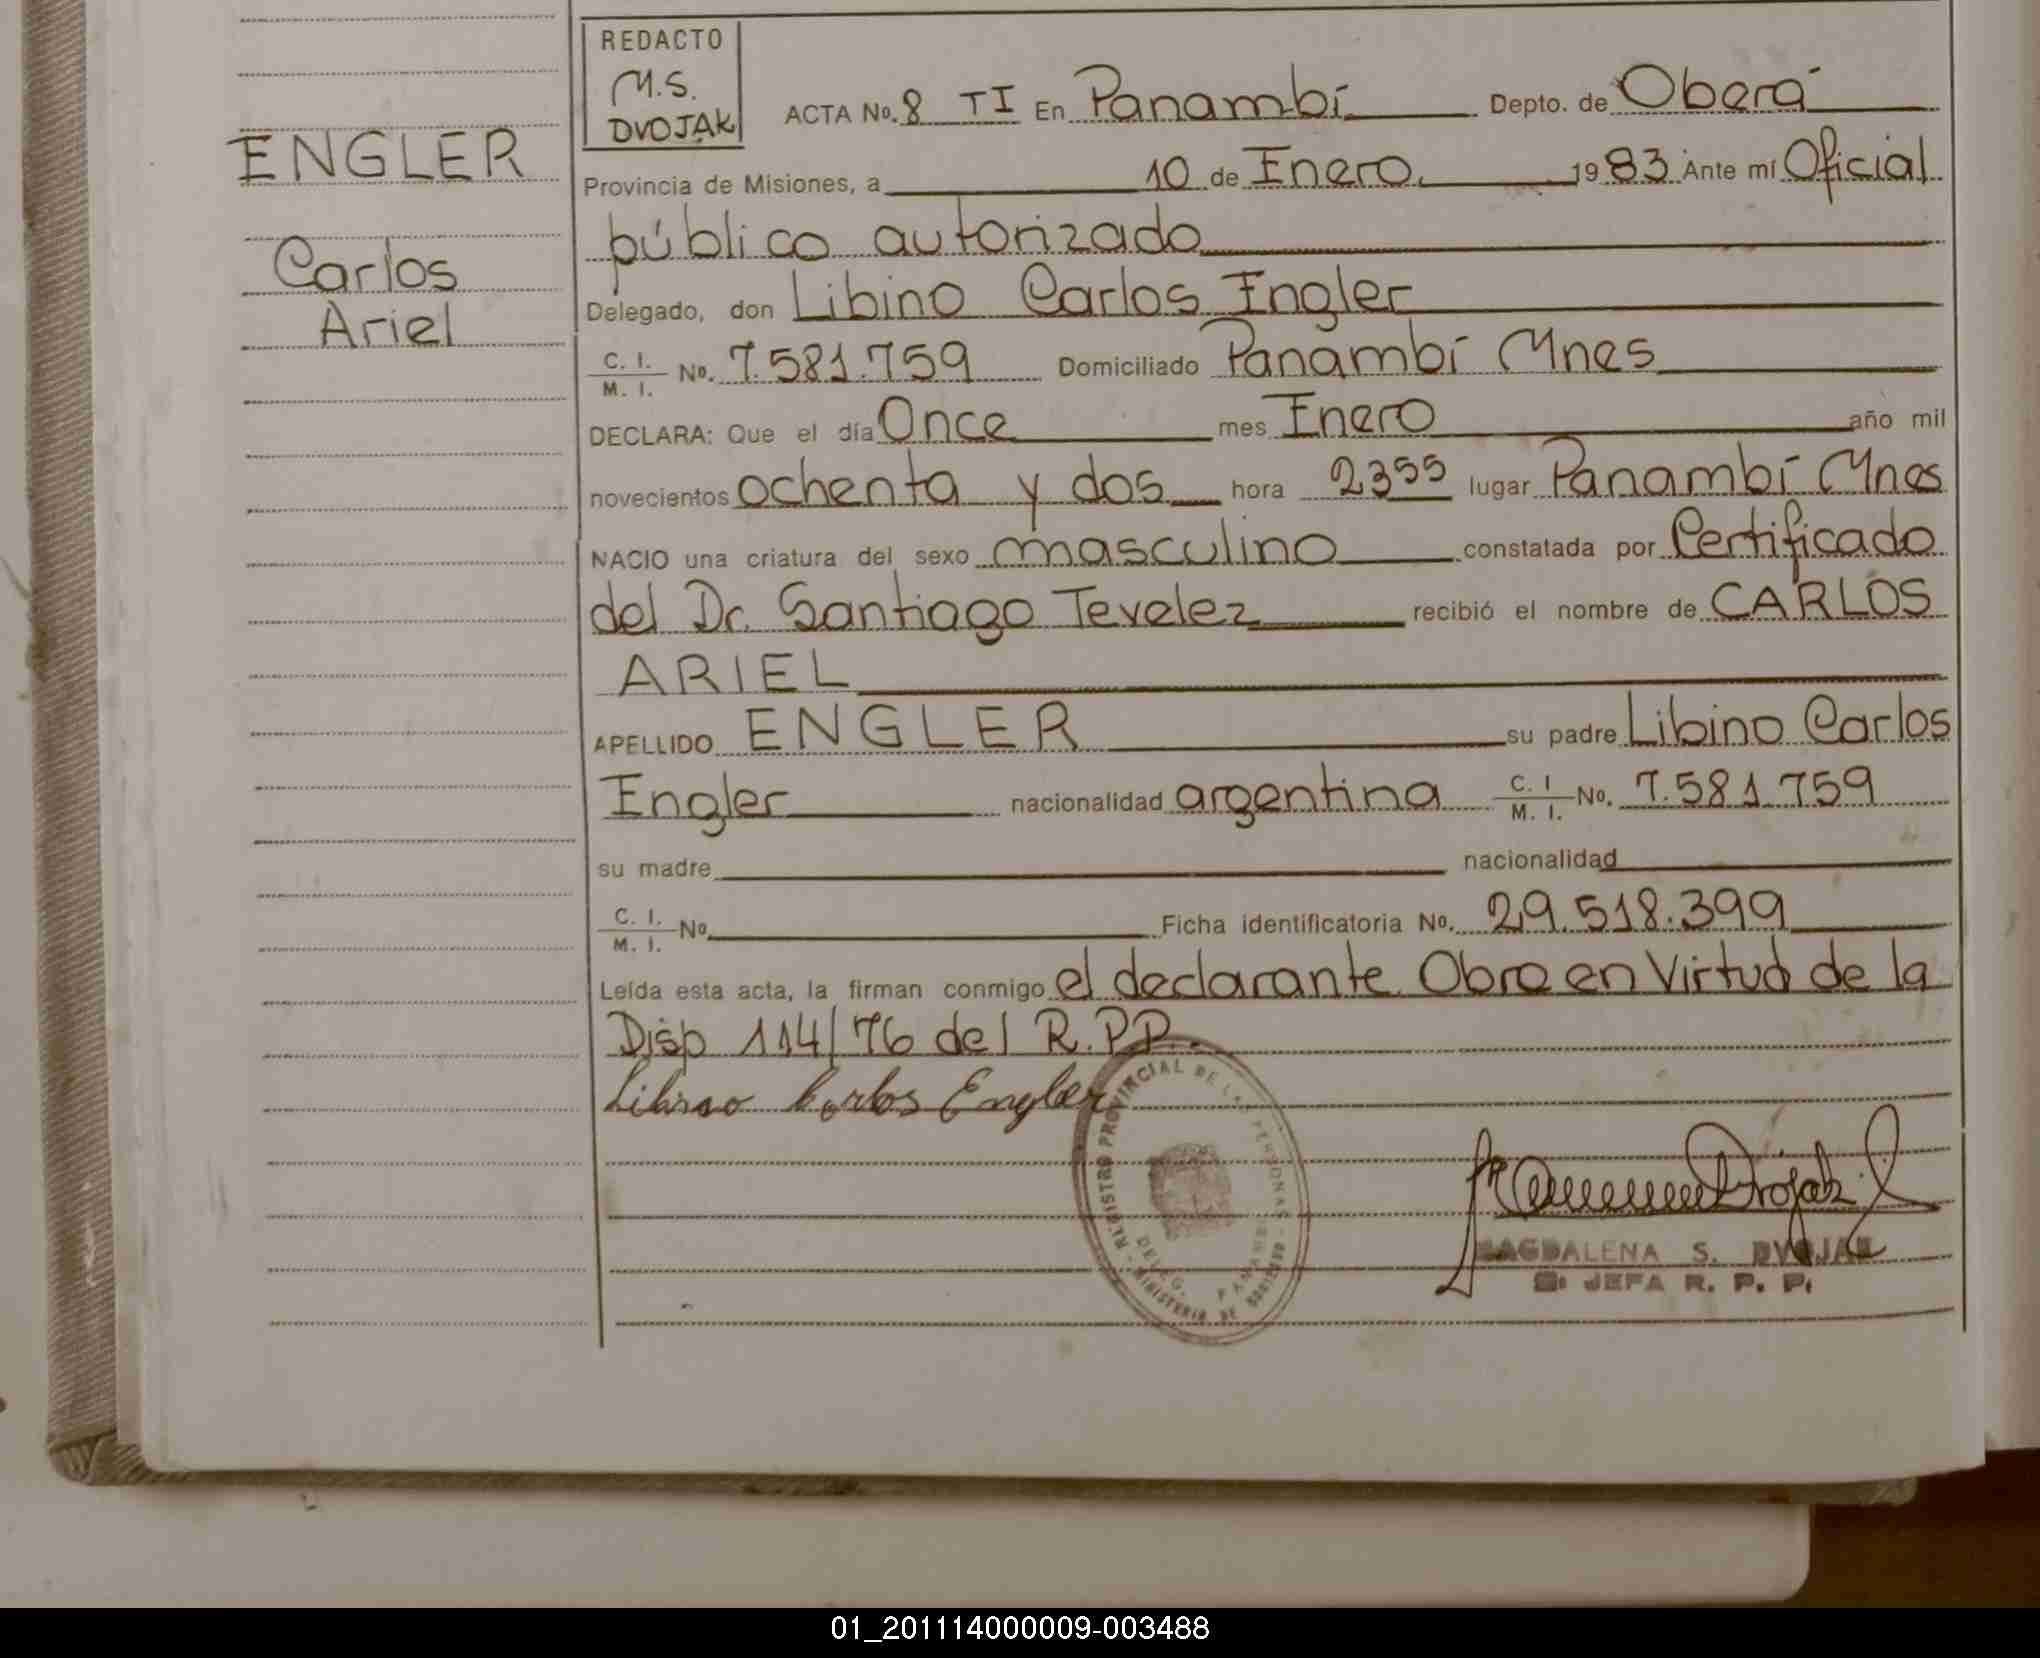 REDACTO
M.S.
DVOJAK
ACTA No. 8 TI En Panambí Depto. de Oberá
ENGLER
Provincia de Misiones, a 10 de Enero 1983 Ante mí Oficial
público autorizado
Carlos
Delegado, don Libino Carlos Engler
Ariel
C. I. / M. I. No. 7.581.759 Domiciliado Panambí Mnes
DECLARA: Que el día Once mes Enero año mil
novecientos ochenta y dos hora 23⁵⁵ lugar Panambí Mnes
NACIO una criatura del sexo masculino constatada por Certificado
del Dr. Santiago Tevelez recibió el nombre de CARLOS
ARIEL
APELLIDO ENGLER su padre Libino Carlos
Engler nacionalidad argentina C. I / M. I. No. 7.581.759
su madre nacionalidad
C. I. / M. I. No. Ficha identificatoria No. 29.518.399
Leída esta acta, la firman conmigo el declarante Obra en Virtud de la
Disp 114/76 del R.P.P.
Libino Carlos Engler
REGISTRO PROVINCIAL DE LAS PERSONAS
DELEG. PANAMBI
MINISTERIO DE GOBIERNO
MAGDALENA S. DVOJAK
JEFA R. P. P.
01_201114000009-003488